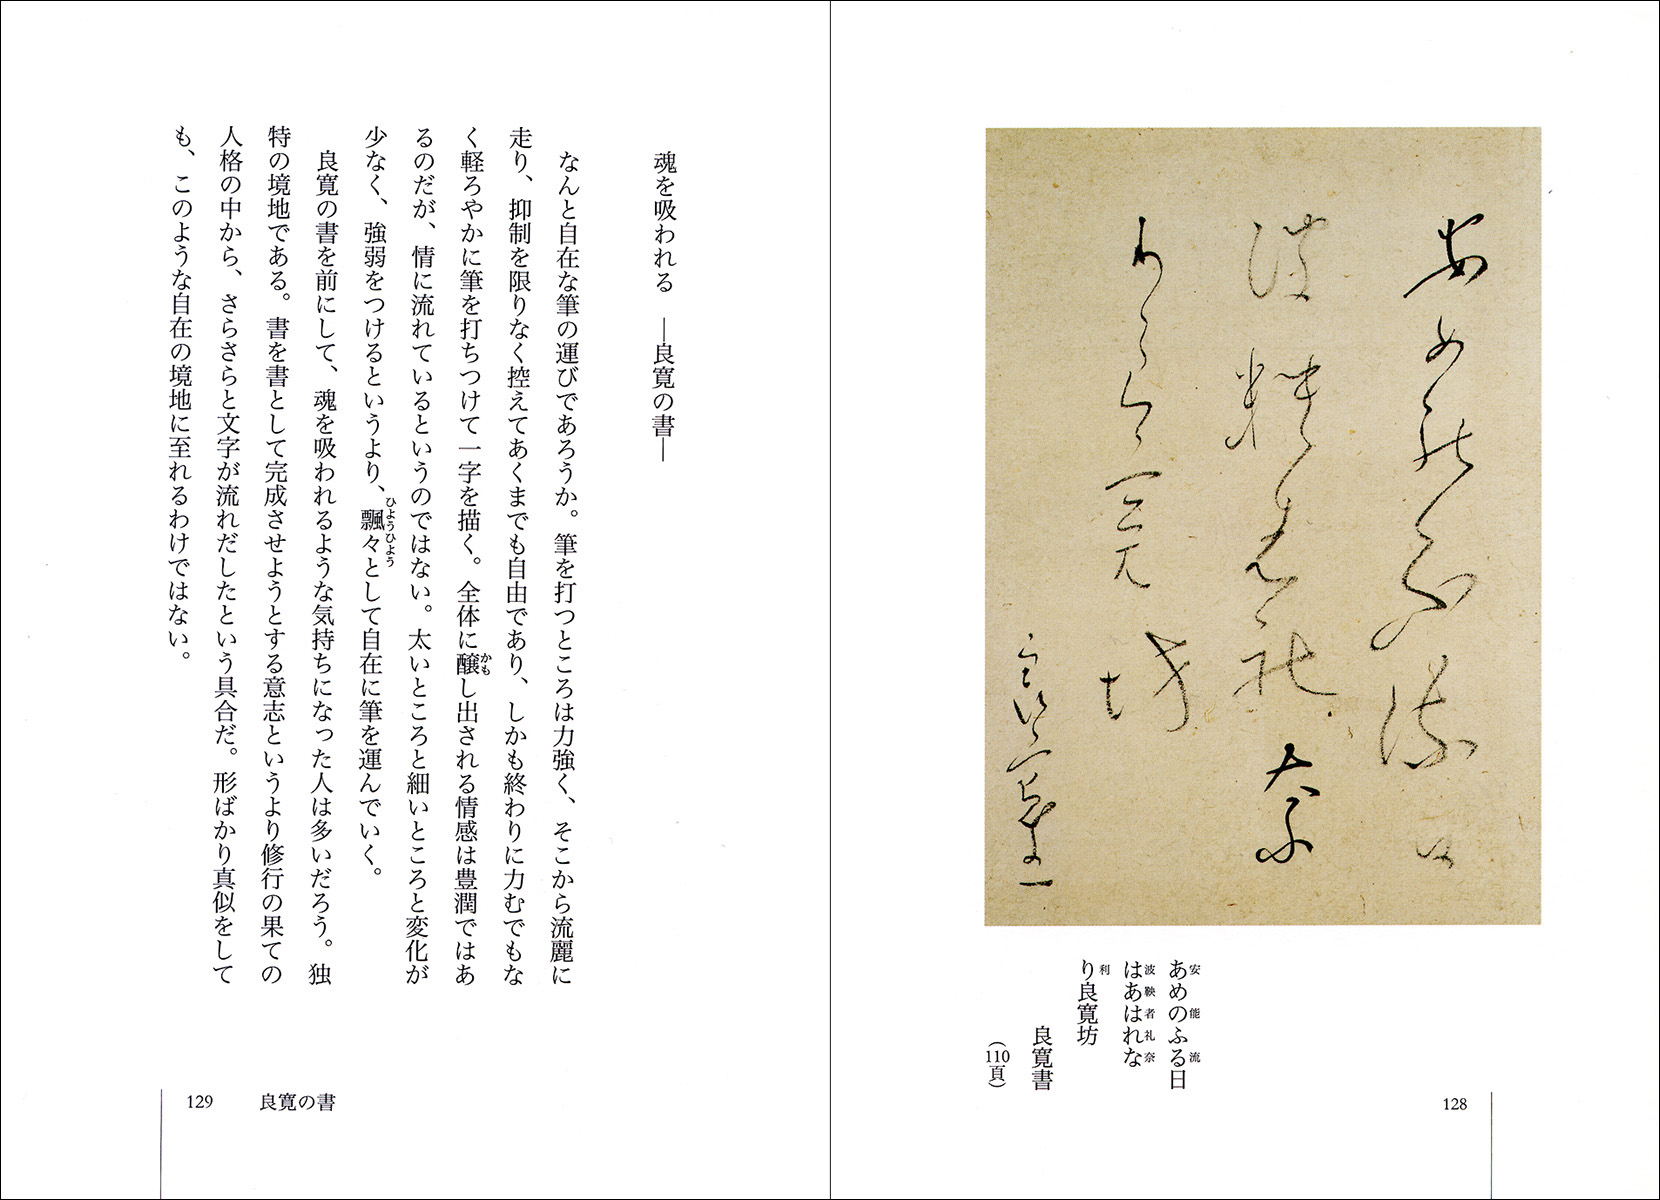 あめのふる日
はあはれな
り良寛坊
良寛書
(110頁)
128
魂を吸われる ―良寛の書―
なんと自在な筆の運びであろうか。筆を打つところは力強く、そこから流麗に
走り、抑制を限りなく控えてあくまでも自由であり、しかも終わりに力むでもな
く軽ろやかに筆を打ちつけて一字を描く。全体に醸し出される情感は豊潤ではあ
るのだが、情に流れているというのではない。太いところと細いところと変化が
少なく、強弱をつけるというより、飄々として自在に筆を運んでいく。
良寛の書を前にして、魂を吸われるような気持ちになった人は多いだろう。独
特の境地である。書を書として完成させようとする意志というより修行の果ての
人格の中から、さらさらと文字が流れだしたという具合だ。形ばかり真似をして
も、このような自在の境地に至れるわけではない。
129 良寛の書